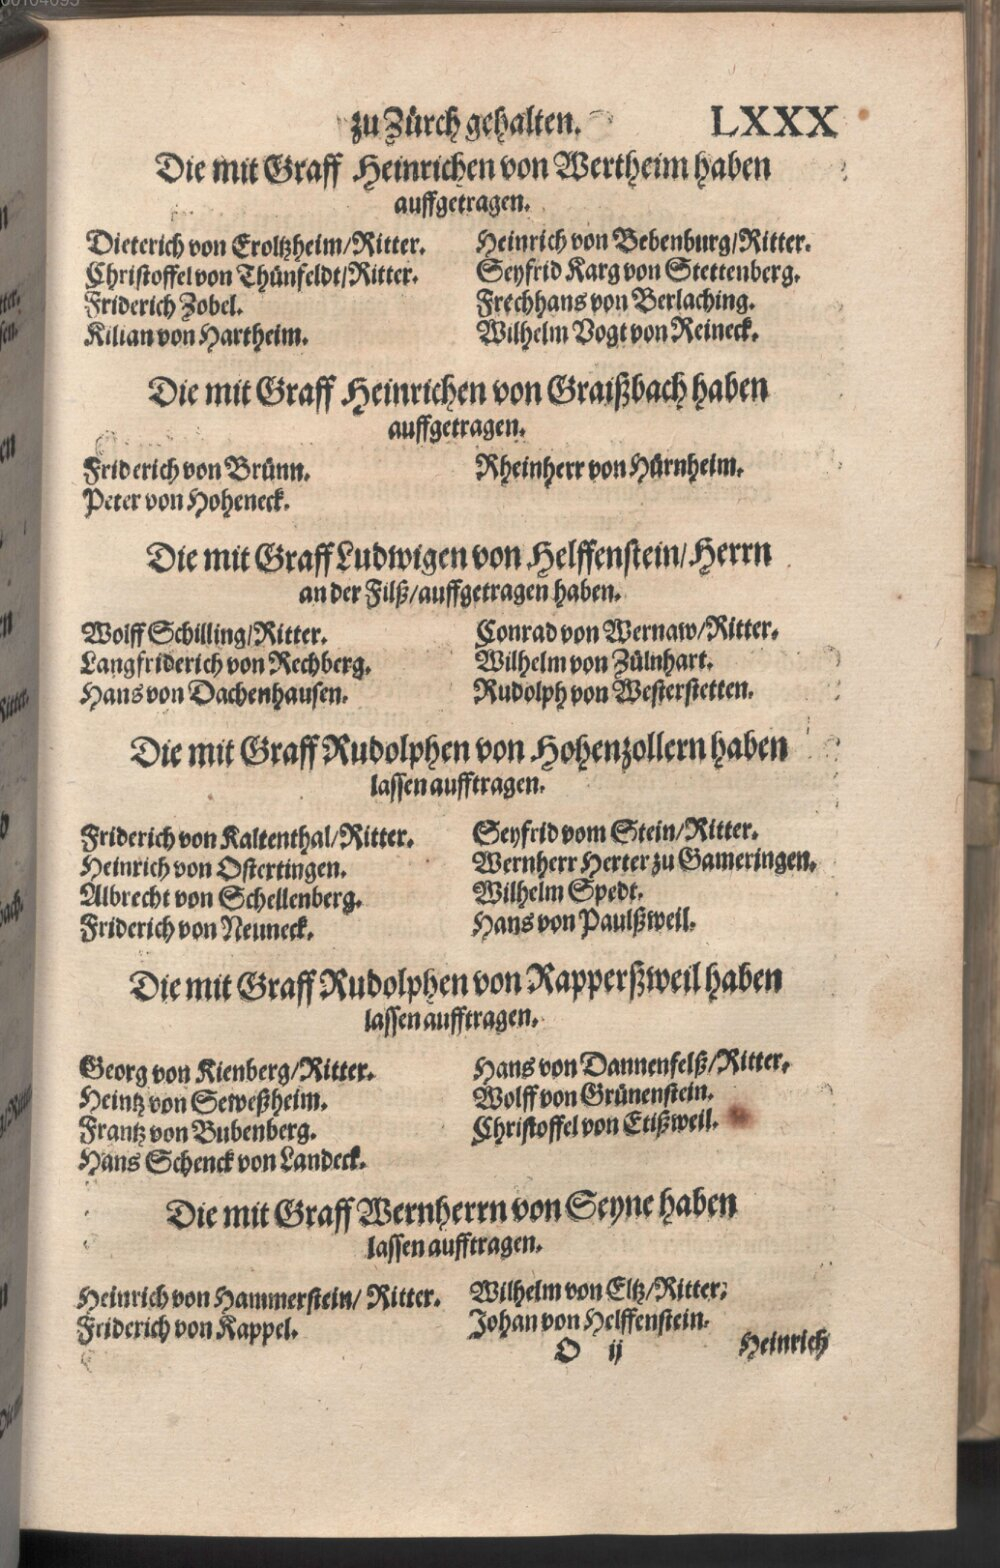 zu Zürch gehalten. LXXX
Die mit Graff Heinrichen von Wertheim haben
auffgetragen.
Dieterich von Eroltzheim/Ritter.
Christoffel von Thünfeldt/Ritter.
Friderich Zobel.
Kilian von Hartheim.
Heinrich von Bebenburg/Ritter.
Seyfrid Karg von Stettenberg.
Frechhans von Berlaching.
Wilhelm Vogt von Reineck.
Die mit Graff Heinrichen von Graißbach haben
auffgetragen.
Friderich von Brünn.
Peter von Hoheneck.
Rheinherr von Hürnheim.
Die mit Graff Ludwigen von Helffenstein/Herrn
an der Filß/auffgetragen haben.
Wolff Schilling/Ritter.
Langfriderich von Rechberg.
Hans von Dachenhausen.
Conrad von Wernaw/Ritter.
Wilhelm von Zülnhart.
Rudolph von Westerstetten.
Die mit Graff Rudolphen von Hohenzollern haben
lassen aufftragen.
Friderich von Kaltenthal/Ritter.
Heinrich von Ostertingen.
Albrecht von Schellenberg.
Friderich von Neuneck.
Seyfrid vom Stein/Ritter.
Wernherr Herter zu Gameringen.
Wilhelm Spedt.
Hans von Paulßweil.
Die mit Graff Rudolphen von Rapperßweil haben
lassen aufftragen.
Georg von Kienberg/Ritter.
Heintz von Seweßheim.
Frantz von Bubenberg.
Hans Schenck von Landeck.
Hans von Dannenfelß/Ritter.
Wolff von Grünenstein.
Christoffel von Etißweil.
Die mit Graff Wernherrn von Seyne haben
lassen aufftragen.
Heinrich von Hammerstein/ Ritter.
Friderich von Kappel.
Wilhelm von Eltz/Ritter.
Johan von Helffenstein.
O ij Heinrich